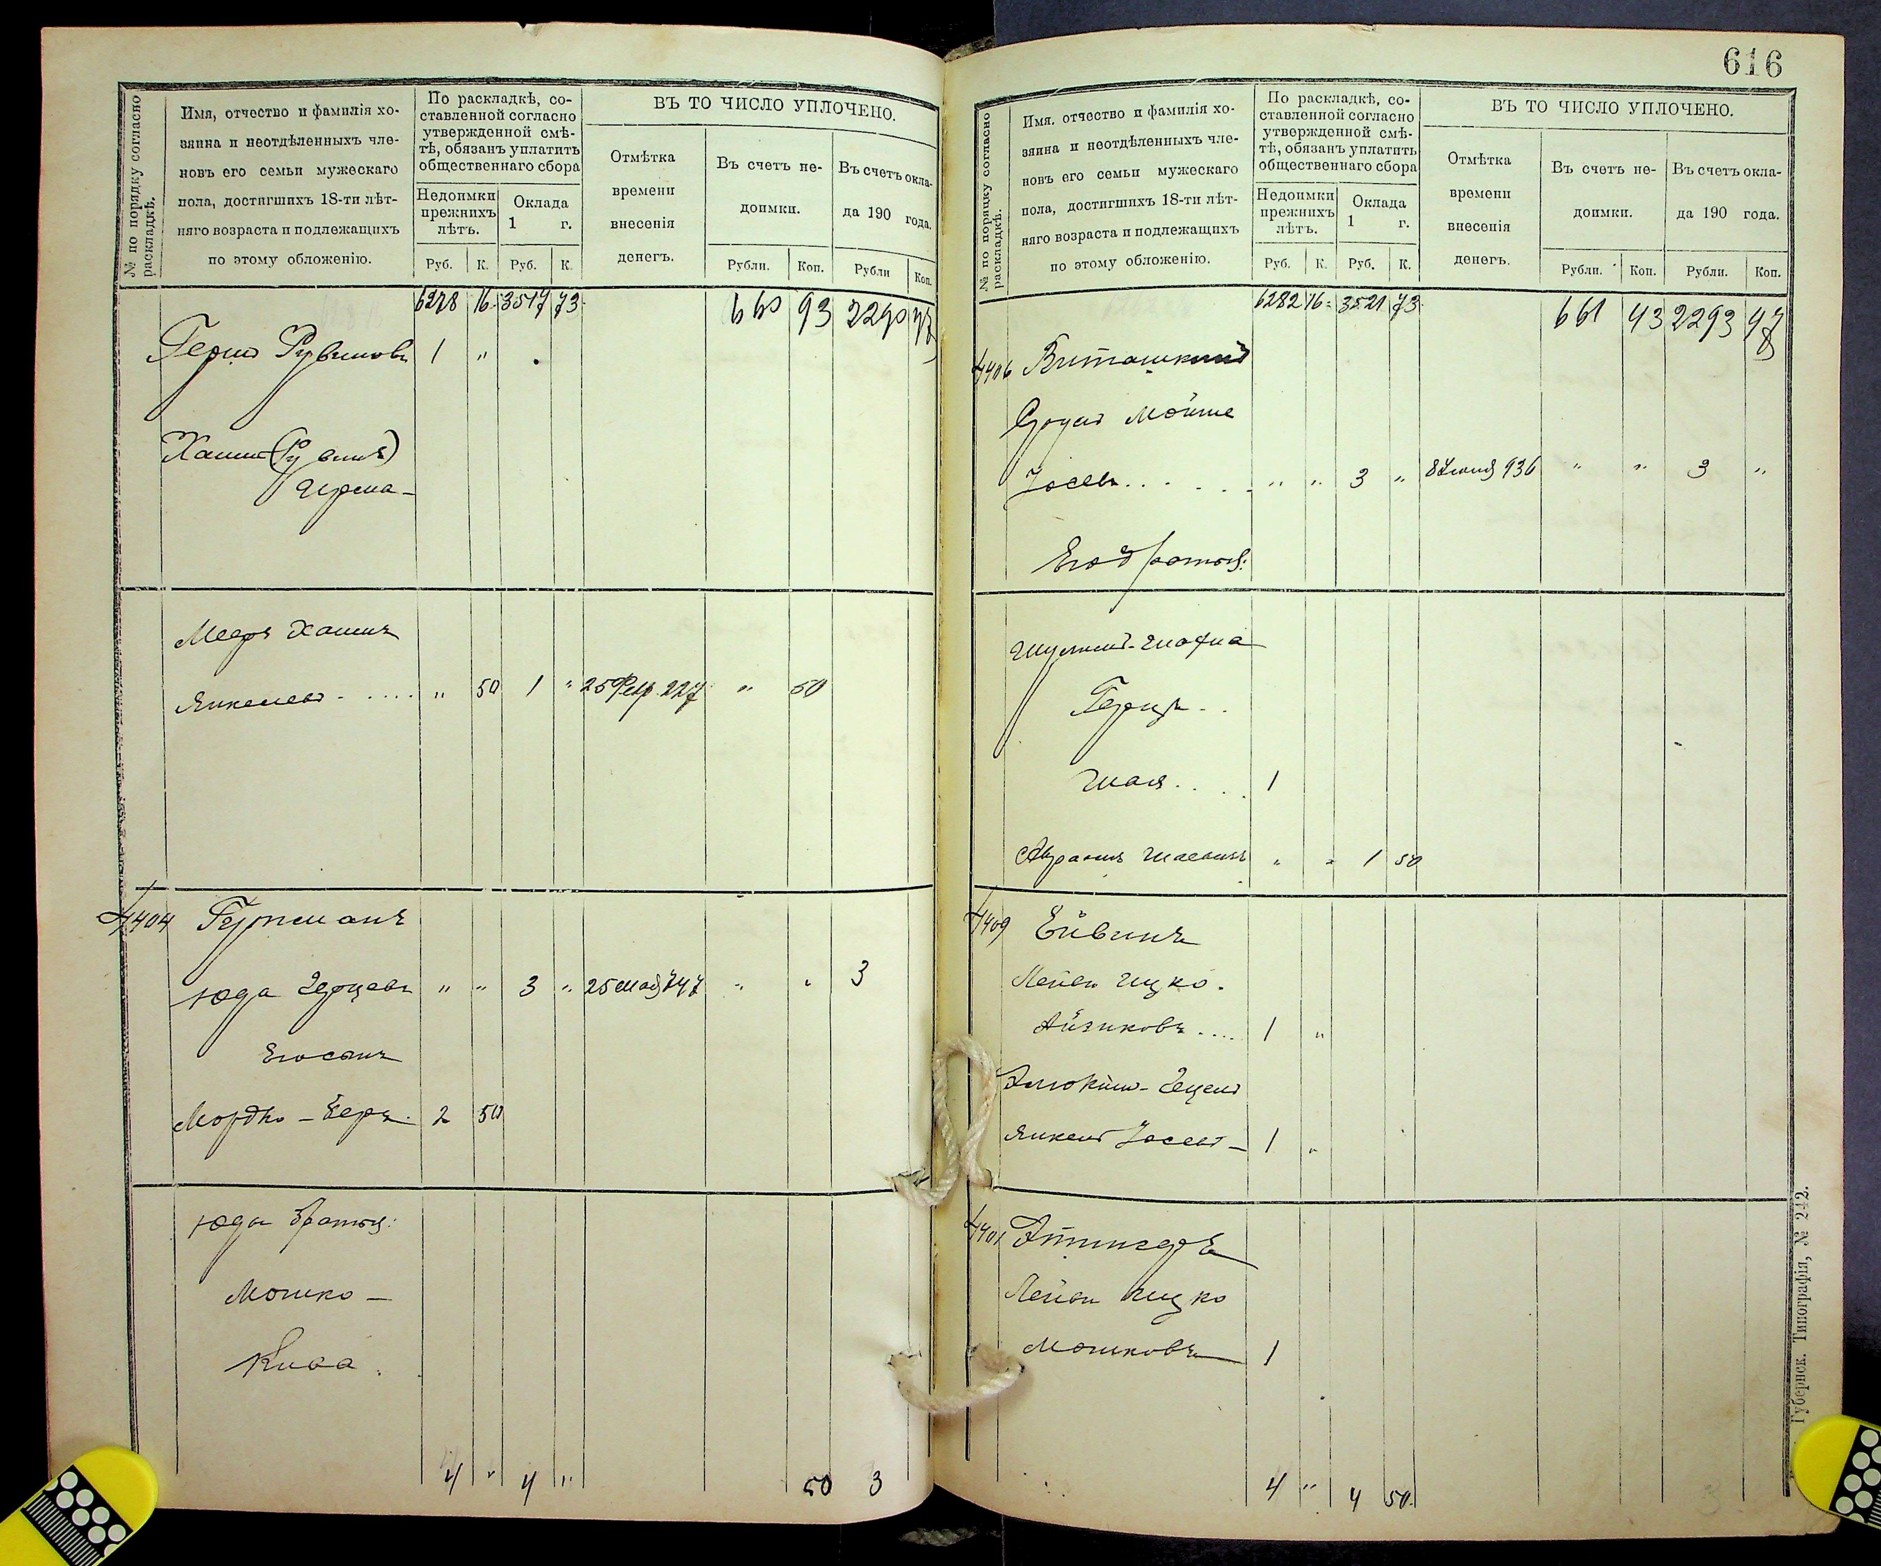 № по порядку согласно раскладкѣ.
Имя, отчество и фамилія хо-
зяина и неотдѣленныхъ чле-
новъ его семьи мужескаго
пола, достигшихъ 18-ти лѣт-
няго возраста и подлежащихъ
по этому обложенію.
По раскладкѣ, со-
ставленной согласно
утвержденной смѣ-
тѣ, обязанъ уплатить
общественнаго сбора
Недоимки
прежнихъ
лѣтъ.
Оклада
1 г.
Руб. К. Руб. К.
ВЪ ТО ЧИСЛО УПЛОЧЕНО.
Отмѣтка
времени
внесенія
денегъ.
Въ счетъ не-
доимки.
Въ счетъ окла-
да 190 года.
Рубли. Коп. Рубли Коп.
6278 16 3517 73 660 93 2290 47
Герш Рувинов 1 "
Хаим (Рувинъ)
Мееръ Хаимъ
Янкелев " 50 1 " 25 Февр 227 " 50
4404 Гертманъ
Юда Герцевъ " " 3 " 25 мая 747 " " 3
Его сынъ
Мордко - Беръ 2 50
Юды братья:
Мошко -
Кива.
4 " 4 " 50 3
616
№ по порядку согласно раскладкѣ.
Имя. отчество и фамилія хо-
зяина и неотдѣленныхъ чле-
новъ его семьи мужескаго
пола, достигшихъ 18-ти лѣт-
няго возраста и подлежащихъ
по этому обложенію.
По раскладкѣ, со-
ставленной согласно
утвержденной смѣ-
тѣ, обязанъ уплатить
общественнаго сбора
Недоимки
прежнихъ
лѣтъ.
Оклада
1 г.
Руб. К. Руб. К.
ВЪ ТО ЧИСЛО УПЛОЧЕНО.
Отмѣтка
времени
внесенія
денегъ.
Въ счетъ не-
доимки.
Въ счетъ окла-
да 190 года.
Рубли. Коп. Рубли. Коп.
6282 16 3521 73 661 43 2293 47
4406
Мойше
Іосев " " 3 " 936 " " 3 "
Его братья:
Герцъ
Шая 1
Абрамъ " " 1 50
4409 Ейвинъ
Лейви Ицко
Айзиковъ 1 "
Янкел Іосел - 1 "
4401 Этингеръ
Лейви Ицко
Мошковъ 1
4 " 4 50
Губернск. Типографія, № 242.